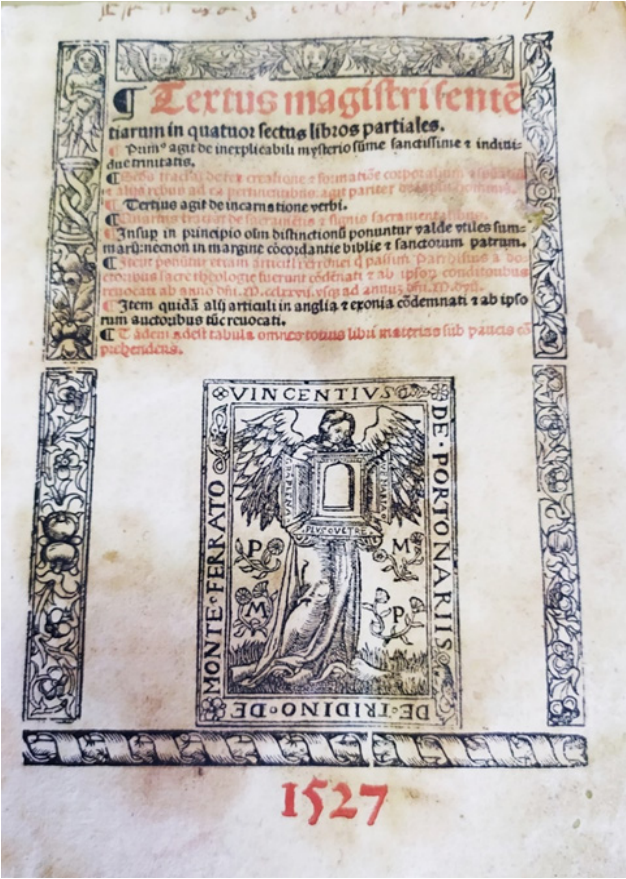 ¶ Textus magistri sentē
tiarum in quatuor sectus libros partiales.
¶ Primꝰ agit de inexplicabili mysterio summe sanctissime ⁊ indiui-
due trinitatis.
rerū creatione ⁊ formatiōe corporalium
⁊ alijs rebus ad ea pertinentibus: agit pariter
¶ Tertius agit de incarnatione verbi.
¶ Quartus tractat de sacramētis ⁊ signis sacramentalibus.
¶ Insup in principio oīm distinctionū ponuntur valde vtiles sum-
marij: necnon in margine cōcordantie biblie ⁊ sanctorum patrum.
¶ Item ponūtur etiam articuli erronei Parrhisius a do-
ctoribus sacre theologie fuerunt cōdēnati ⁊ ab ipsorū conditoribus
reuocati ab anno dñi. M.
¶ Item quidā alij articuli in anglia ⁊ exonia cōdemnati ⁊ ab ipso
rum auctoribus tūc reuocati.
¶ Tādem adest tabula omnes totius libri materias sub paucis cō
prehendens.
VINCENTIVS
DE·PORTONARIIS
DE·TRIDINO·DE
MONTE·FERRATO
P M
M P
1527